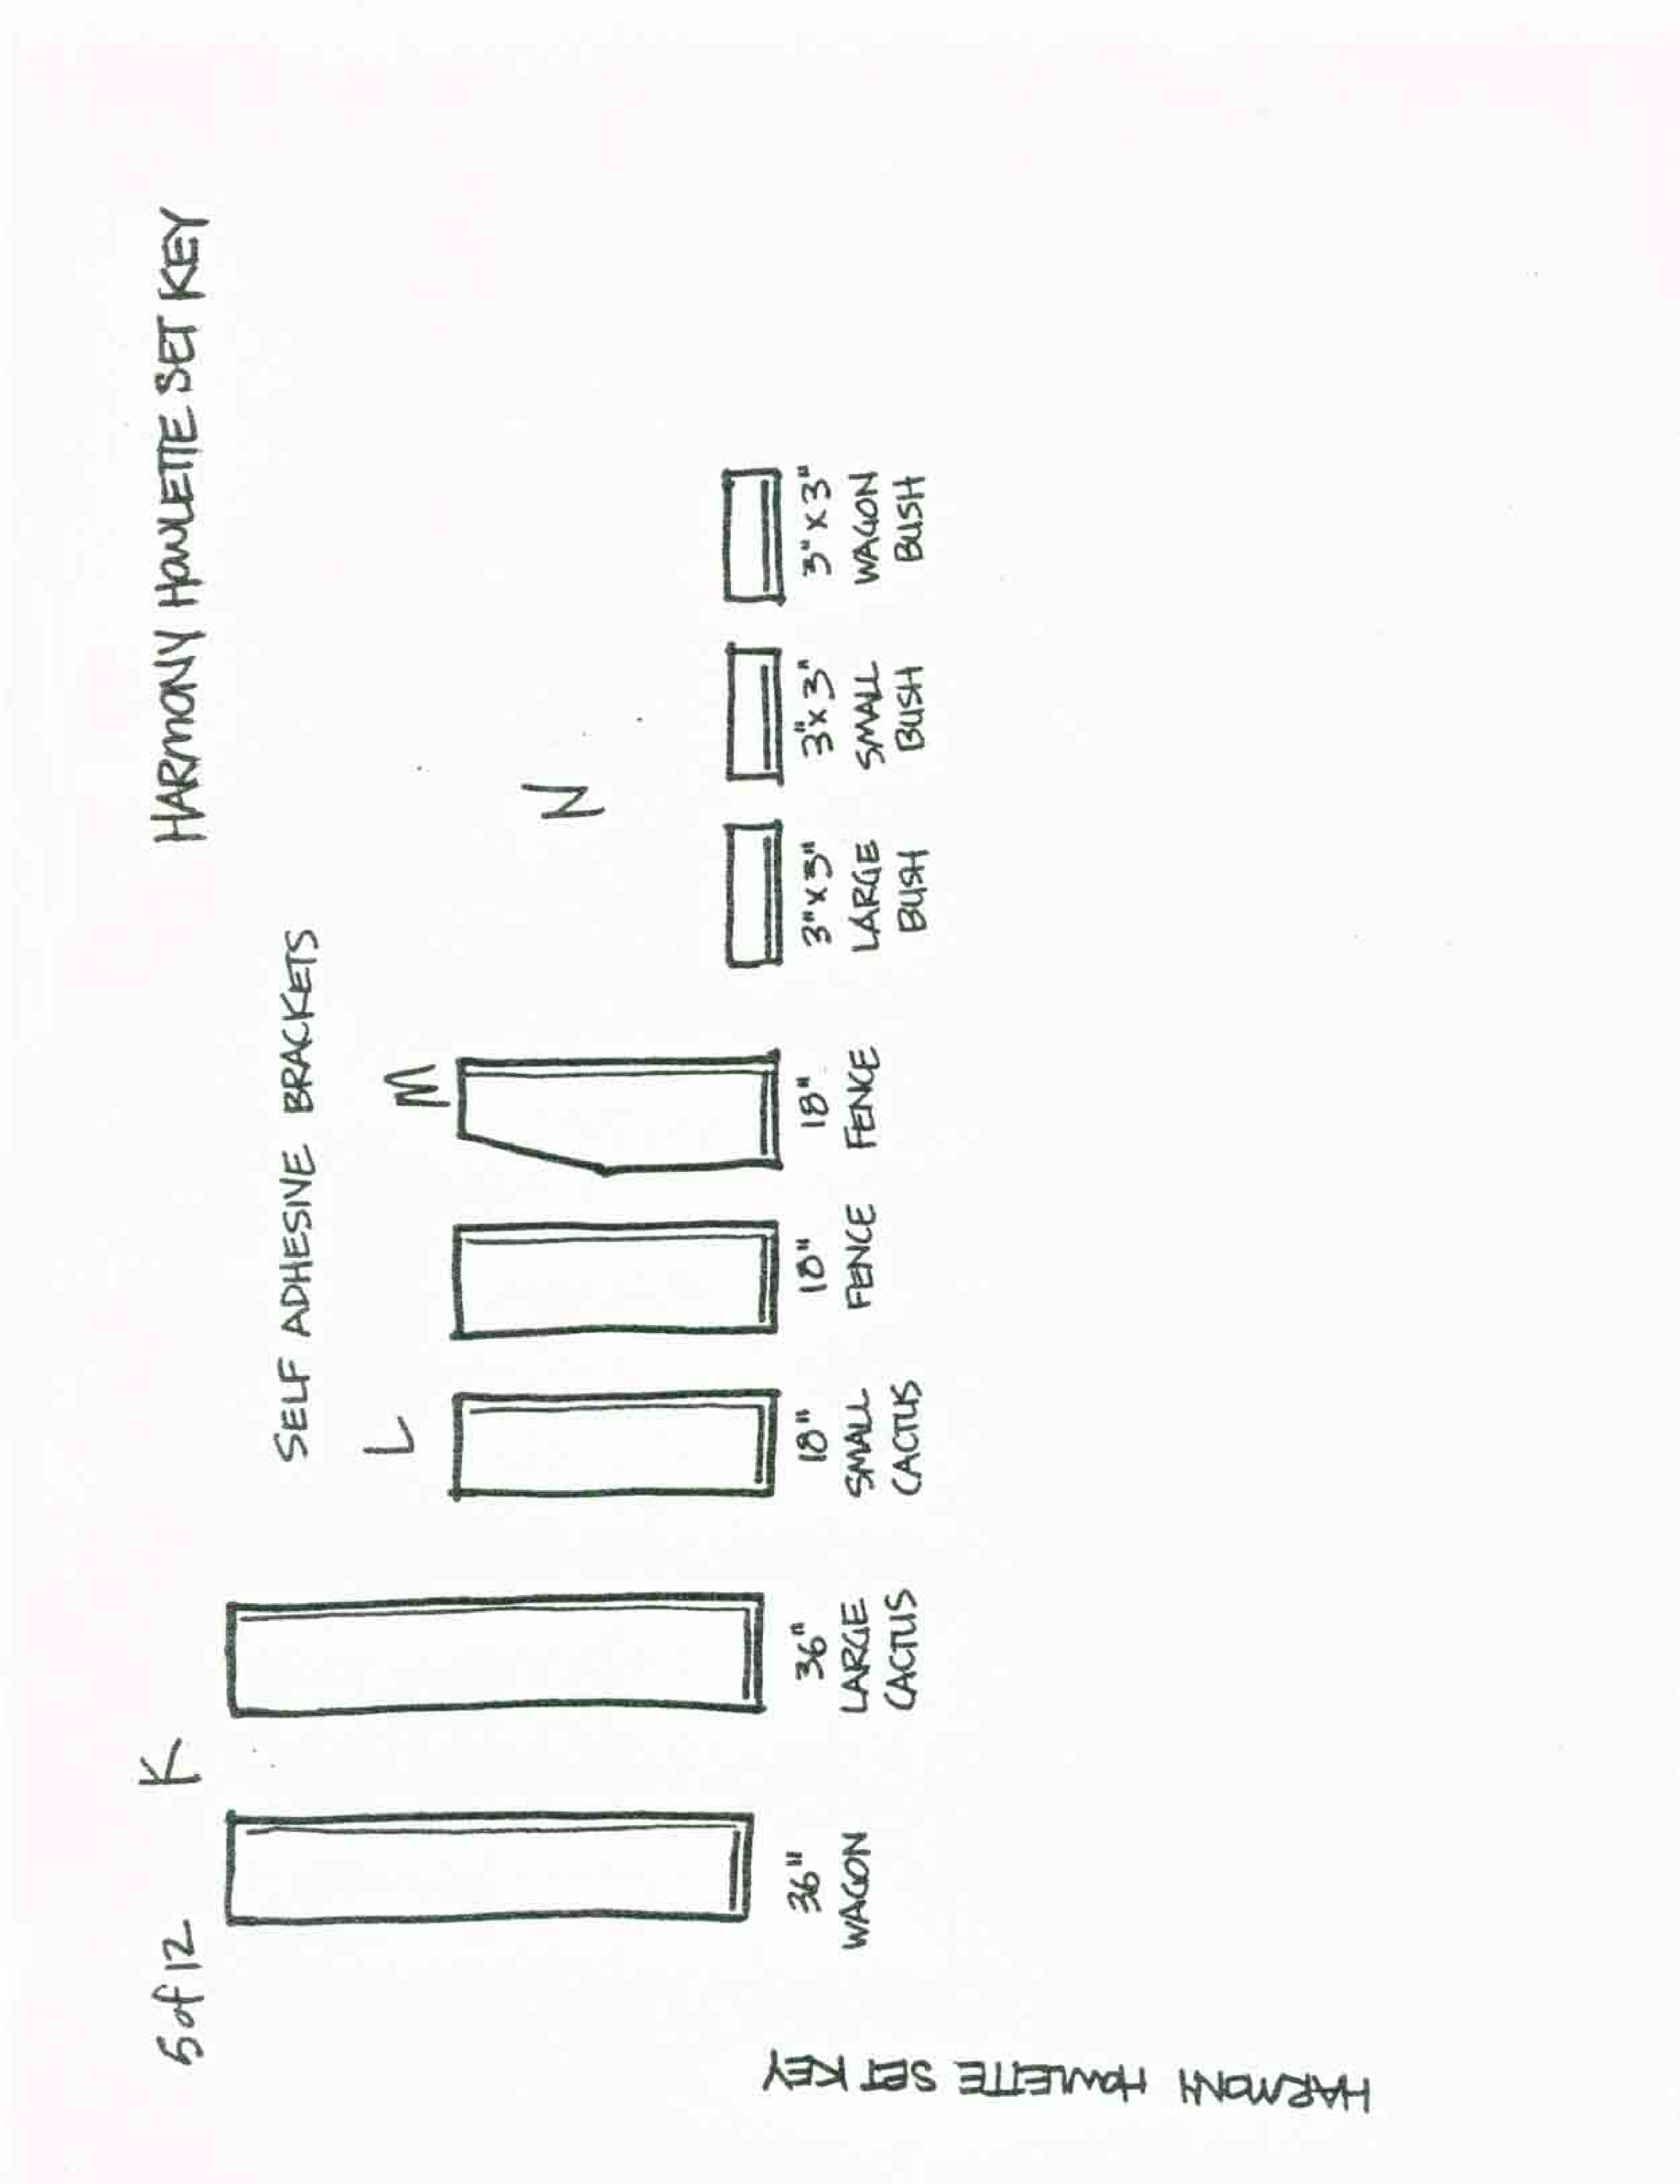 5 of 12
HARMONY HOWLETTE SET KEY
SELF ADHESIVE BRACKETS
K
L
M
N
36"
WAGON
36"
LARGE
CACTUS
18"
SMALL
CACTUS
18"
FENCE
18"
FENCE
3" x 3"
LARGE
BUSH
3" x 3"
SMALL
BUSH
3" x 3"
WAGON
BUSH
HARMONY HOWLETTE SET KEY